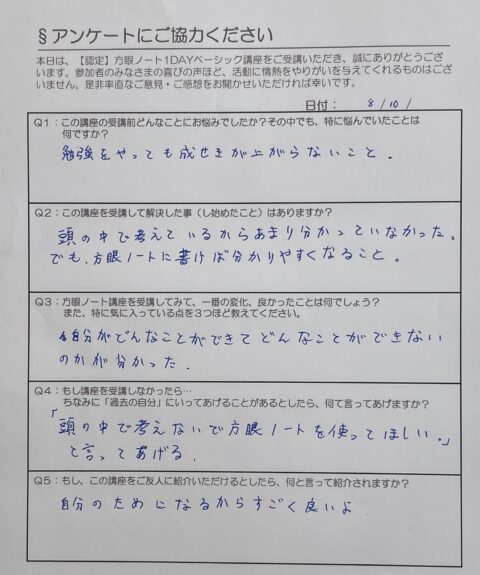 §アンケートにご協力ください
本日は、【認定】方眼ノート1DAYベーシック講座をご受講いただき、誠にありがとうござ
います。参加者のみなさまの喜びの声ほど、活動に情熱をやりがいを与えてくれるものはござ
いません。是非率直なご意見・ご感想をお聞かせいただければ幸いです。
日付： 8/10/
Q1：この講座の受講前どんなことにお悩みでしたか？その中でも、特に悩んでいたことは
何ですか？
勉強をやっても成せきが上がらないこと.
Q2：この講座を受講して解決した事（し始めたこと）はありますか？
頭の中で考えているからあまり分かっていなかった。
でも、方眼ノートに書けば分かりやすくなること。
Q3：方眼ノート講座を受講してみて、一番の変化、良かったことは何でしょう？
また、特に気に入っている点を3つほど教えてください。
自分がどんなことができてどんなことができない
のかが分かった.
Q4：もし講座を受講しなかったら…
ちなみに「過去の自分」にいってあげることがあるとしたら、何て言ってあげますか？
「頭の中で考えないで方眼ノートを使ってほしい。」
と言ってあげる.
Q5：もし、この講座をご友人に紹介いただけるとしたら、何と言って紹介されますか？
自分のためになるからすごく良いよ